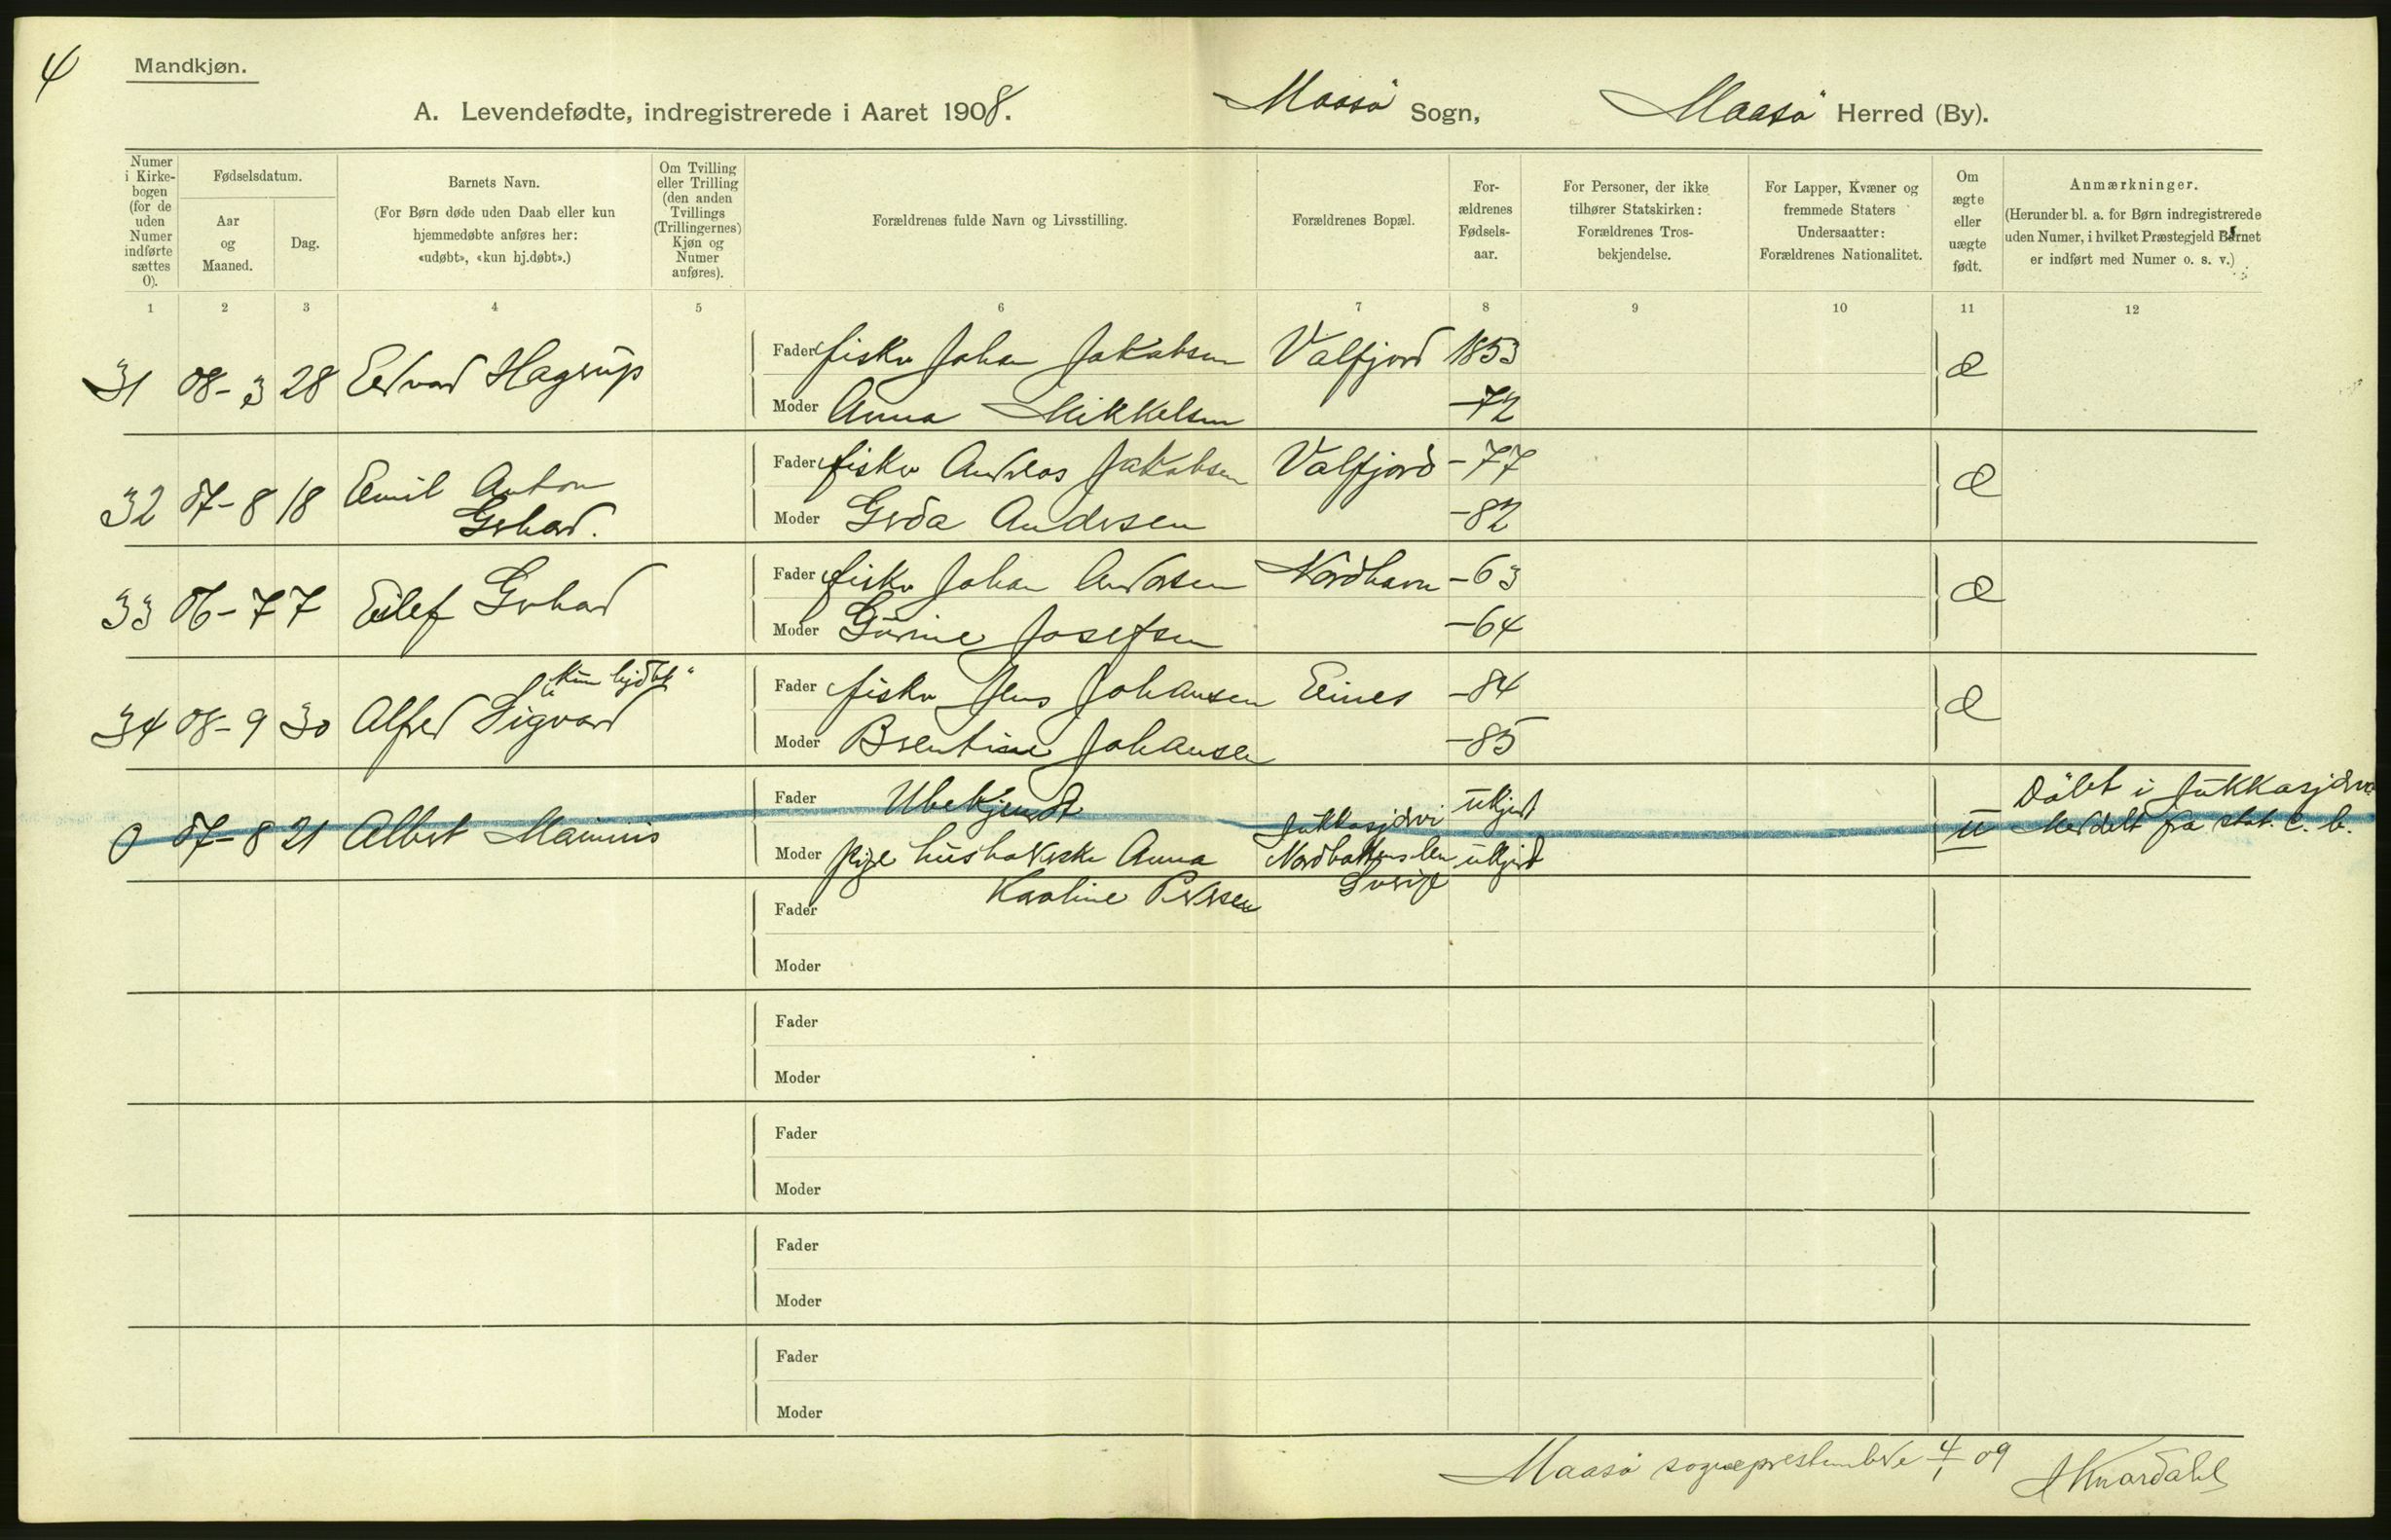 4
Mandkjøn.
A. Levendefødte, indregistrerede i Aaret 1908. Maasö Sogn, Maasö Herred (By).
Numer i Kirkebogen (for de uden Numer indførte sættes 0).
Fødselsdatum.
Aar og Maaned.
Dag.
Barnets Navn.
(For Børn døde uden Daab eller kun hjemmedøbte anføres her: «udøbt», «kun hj.døbt».)
Om Tvilling eller Trilling (den anden Tvillings (Trillingernes) Kjøn og Numer anføres).
Forældrenes fulde Navn og Livsstilling.
Forældrenes Bopæl.
Forældrenes Fødselsaar.
For Personer, der ikke tilhører Statskirken: Forældrenes Trosbekjendelse.
For Lapper, Kvæner og fremmede Staters Undersaatter: Forældrenes Nationalitet.
Om ægte eller uægte født.
Anmærkninger.
(Herunder bl. a. for Børn indregistrerede uden Numer, i hvilket Præstegjeld Barnet er indført med Numer o. s. v.)
1 2 3 4 5 6 7 8 9 10 11 12
31 08-3 28 Edvard Hagrup Fader fisker Johan Jakobsen Valfjord 1853 æ
Moder Anna Mikkelsen -72
32 07-8 18 Emil Anton Gerhard. Fader fisker Andreas Jakobsen Valfjord -77 æ
Moder Gerda Andersen -82
33 06-7 7 Eilef Gerhard Fader fisker Johan Andersen Nordhavn -63 æ
Moder Gurine Josefsen -64
34 08-9 30 Alfred Sigvard "kun hjdøbt" Fader fisker Jens Johansen Eines -84 æ
Moder Berentine Johansen -85
0 07-8 21 Albert Mainus Fader Ubekjendt ukjent u Döbt i Jukkasjärvi
Moder pige husholderske Anna Jukkasjärvi Nordbottens len ukjent Meddelt fra stat. c. b.
Karoline Petersen Sverige
Fader
Moder
Fader
Moder
Fader
Moder
Fader
Moder
Fader
Moder
Maasö sogneprestembede 4/1 09 Knardahl